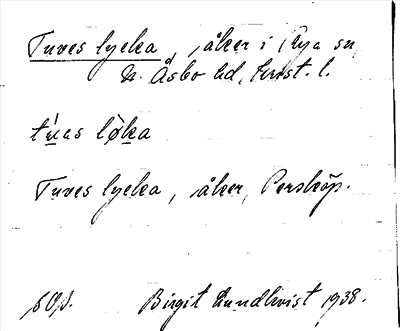 Tuves lycka, åker i Rya sn,
N. Åsbo hd, Krist. l.
túas lø̀ka
Tuves lycka, åker, Perstorp.
Birgit Lundkvist 1938.